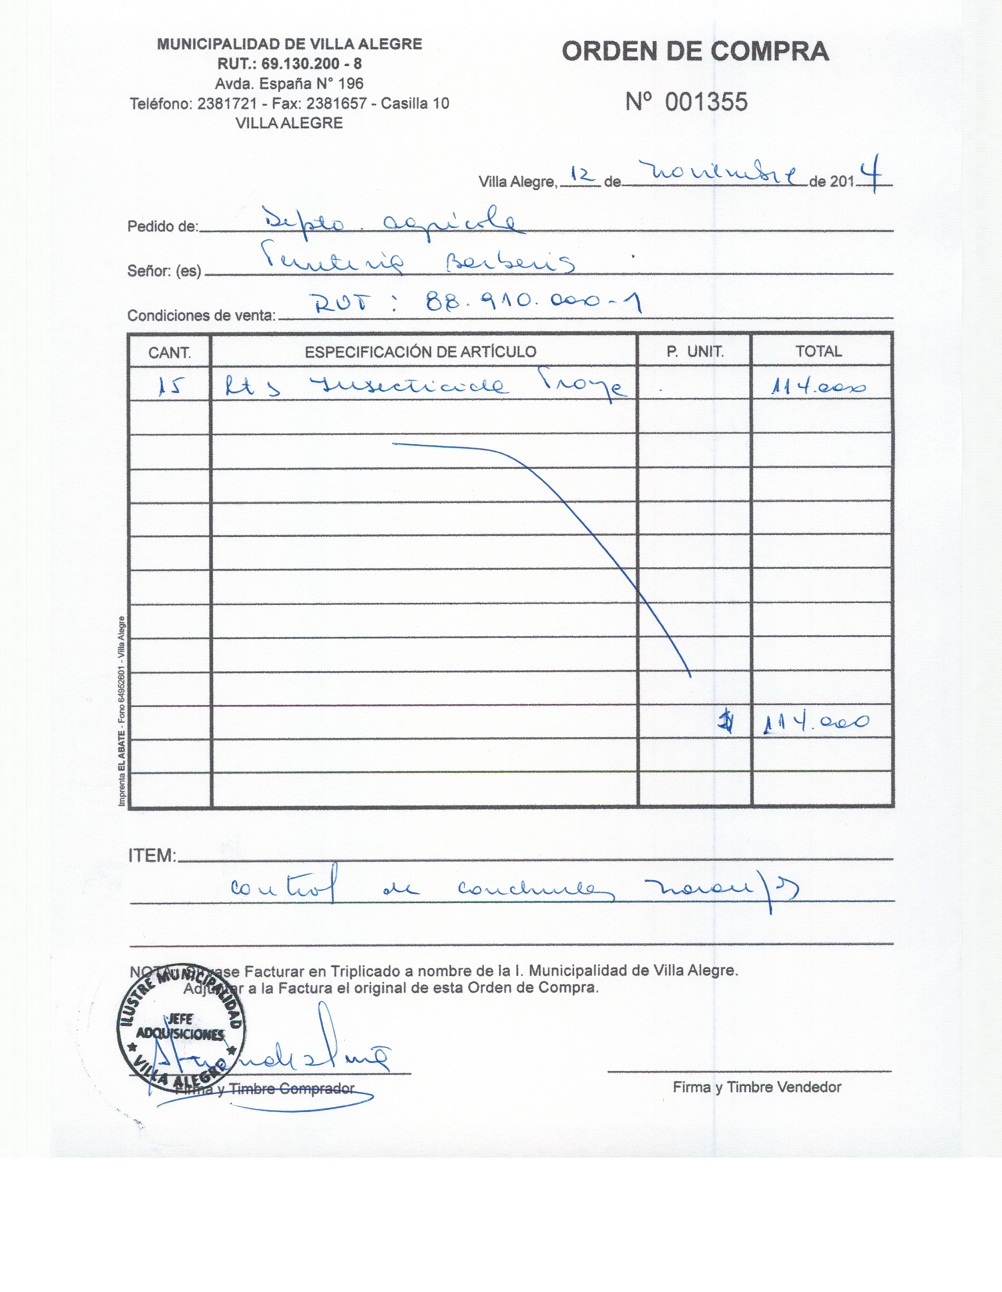 MUNICIPALIDAD DE VILLA ALEGRE
RUT.: 69.130.200 - 8
Avda. España N° 196
Teléfono: 2381721 - Fax: 2381657 - Casilla 10
VILLA ALEGRE
ORDEN DE COMPRA
Nº 001355
Villa Alegre, 12 de noviembre de 2014
Pedido de: Depto. agricola
Señor: (es) Ferreteria Berberis
Condiciones de venta: RUT : 88.910.000-1
CANT. ESPECIFICACIÓN DE ARTÍCULO P. UNIT. TOTAL
15 Lts Insecticida Troya 114.000
$ 114.000
Imprenta EL ABATE - Fono 64952601 - Villa Alegre
ITEM:
control de conchuelas
NOTA: Sírvase Facturar en Triplicado a nombre de la I. Municipalidad de Villa Alegre.
Adjuntar a la Factura el original de esta Orden de Compra.
ILUSTRE MUNICIPALIDAD
JEFE
ADQUISICIONES
VILLA ALEGRE
Firma y Timbre Comprador
Firma y Timbre Vendedor